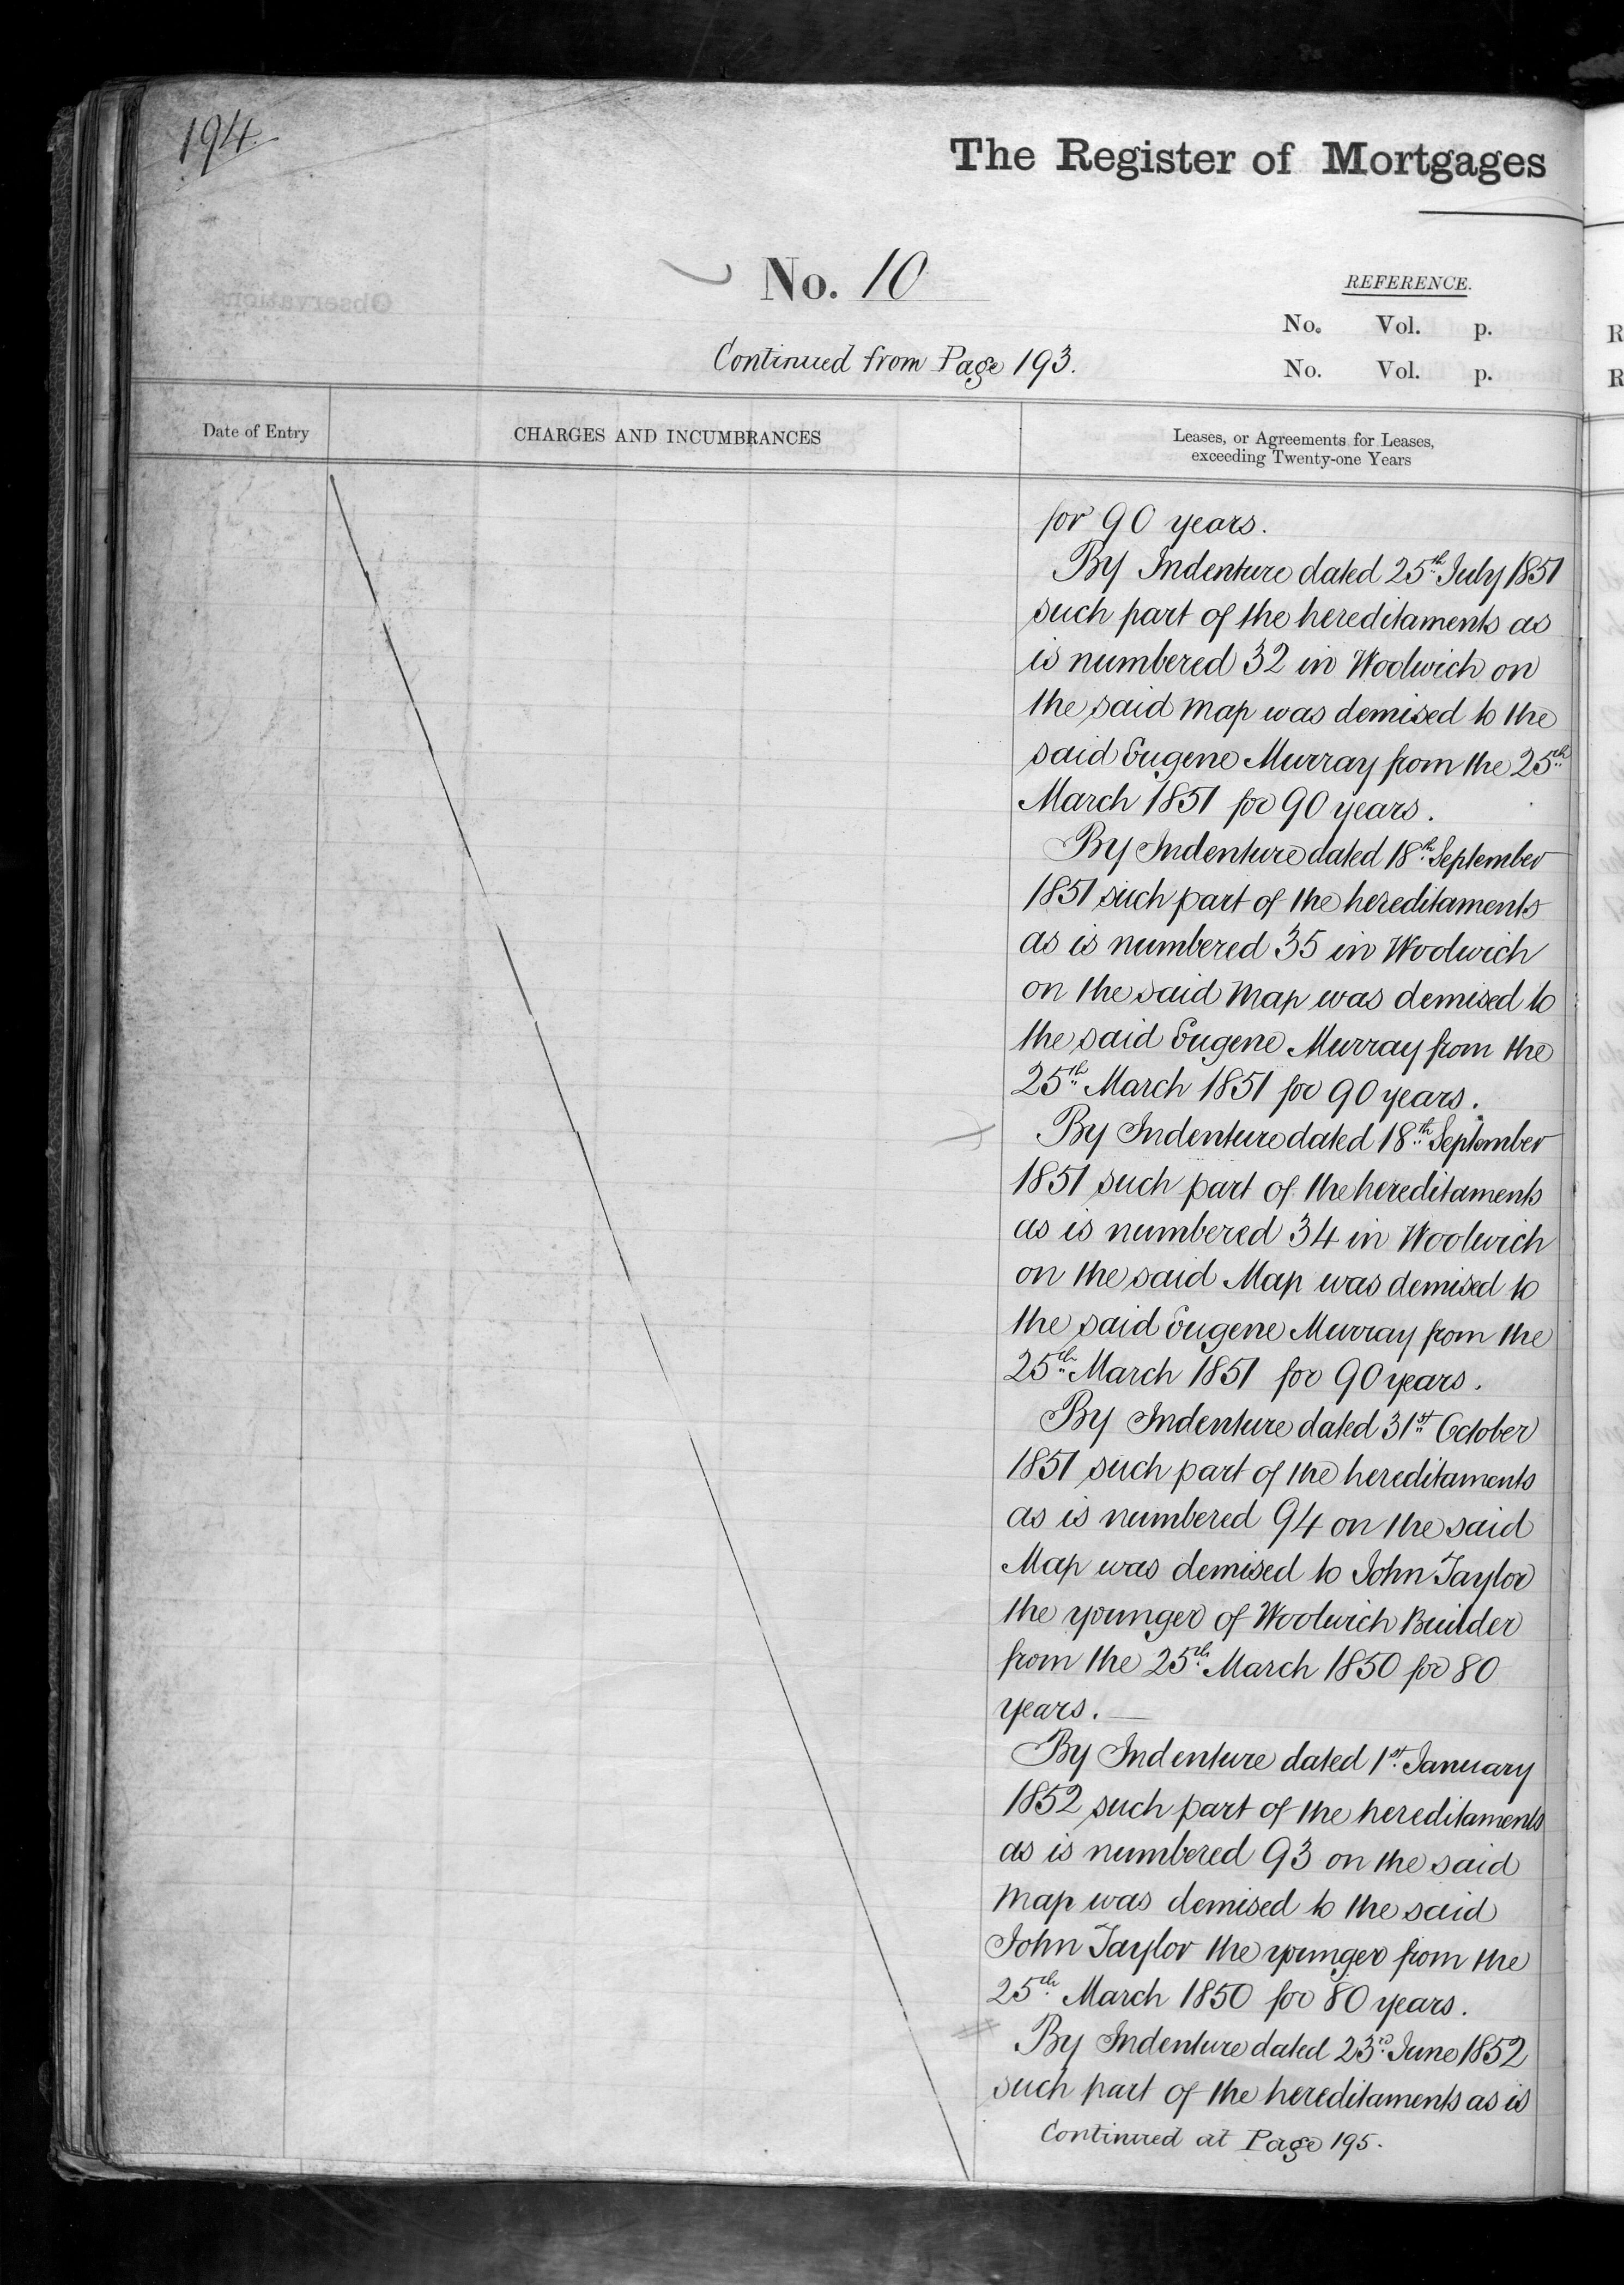 194.
The Register of Mortgages
No. 10
REFERENCE.
No. Vol. p.
No. Vol. p.
Continued from Page 193.
Date of Entry
CHARGES AND INCUMBRANCES
Leases, or Agreements for Leases,
exceeding Twenty-one Years
for 90 years.
By Indenture dated 25th July 1851
such part of the hereditaments as
is numbered 32 in Woolwich on
the said map was demised to the
said Eugene Murray from the 25th
March 1851 for 90 years.
By Indenture dated 18th September
1851 such part of the hereditaments
as is numbered 35 in Woolwich
on the said map was demised to
the said Eugene Murray from the
25th March 1851 for 90 years.
By Indenture dated 18th September
1851 such part of the hereditaments
as is numbered 34 in Woolwich
on the said Map was demised to
the said Eugene Murray from the
25th March 1851 for 90 years.
By Indenture dated 31st October
1851 such part of the hereditaments
as is numbered 94 on the said
Map was demised to John Taylor
the younger of Woolwich Builder
from the 25th March 1850 for 80
years.
By Indenture dated 1st January
1852 such part of the hereditaments
as is numbered 93 on the said
map was demised to the said
John Taylor the younger from the
25th March 1850 for 80 years.
By Indenture dated 23rd June 1852
such part of the hereditaments as is
Continued at Page 195.
R
R